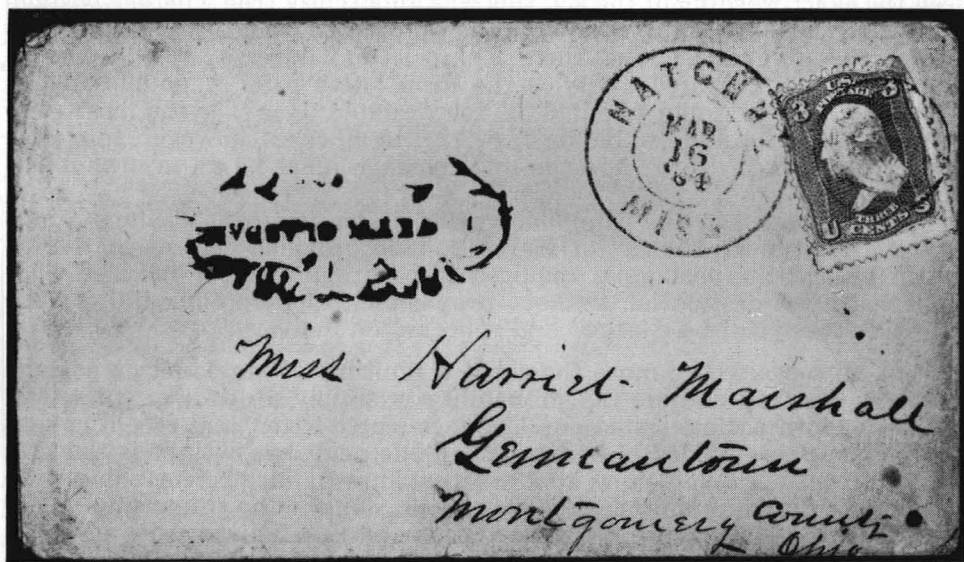 NATCHE
MAR
16
'64
MISS
U.S.
POSTAGE
3 3
THREE
U S
CENTS
Miss Harriet Marshall
Germantown
Montgomery County
Ohio